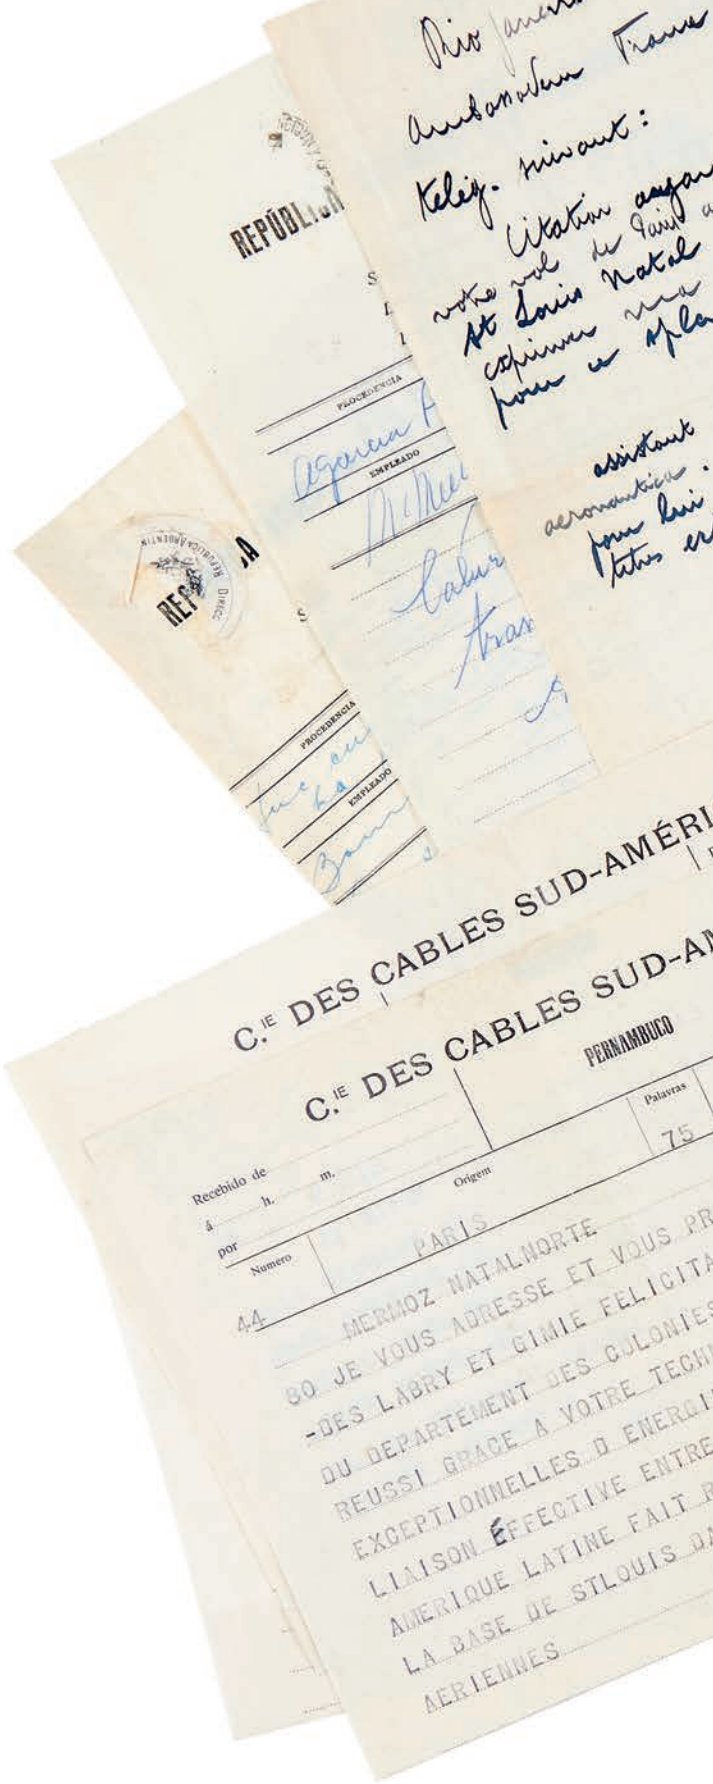 Rio Janeiro
Ambassadeur France
Télég. suivant :
Citation
votre vol de Paris a
St Louis Natal
exprimer ma
pour ce sple
assistant
aeronautica.
pour lui
titres
REPÚBLICA
S
PROCEDENCIA
EMPLEADO
REPUBLICA ARGENTIN
DIRECC
REP A
S
PROCEDENCIA
EMPLEADO
C.IE DES CABLES SUD-AMÉRI
C.IE DES CABLES SUD-AM
PERNAMBUCO
Recebido de
á h. m.
por
Origem
Palavras
75
Numero
PARIS
44
MERMOZ NATALNORTE
80 JE VOUS ADRESSE ET VOUS PR
-DES LABRY ET GIMIE FELICITA
DU DEPARTEMENT DES COLONIES
REUSSI GRACE A VOTRE TECHN
EXCEPTIONNELLES D ENERGI
LIAISON ÉFFECTIVE ENTRE
AMERIQUE LATINE FAIT R
LA BASE DE STLOUIS DA
AERIENNES